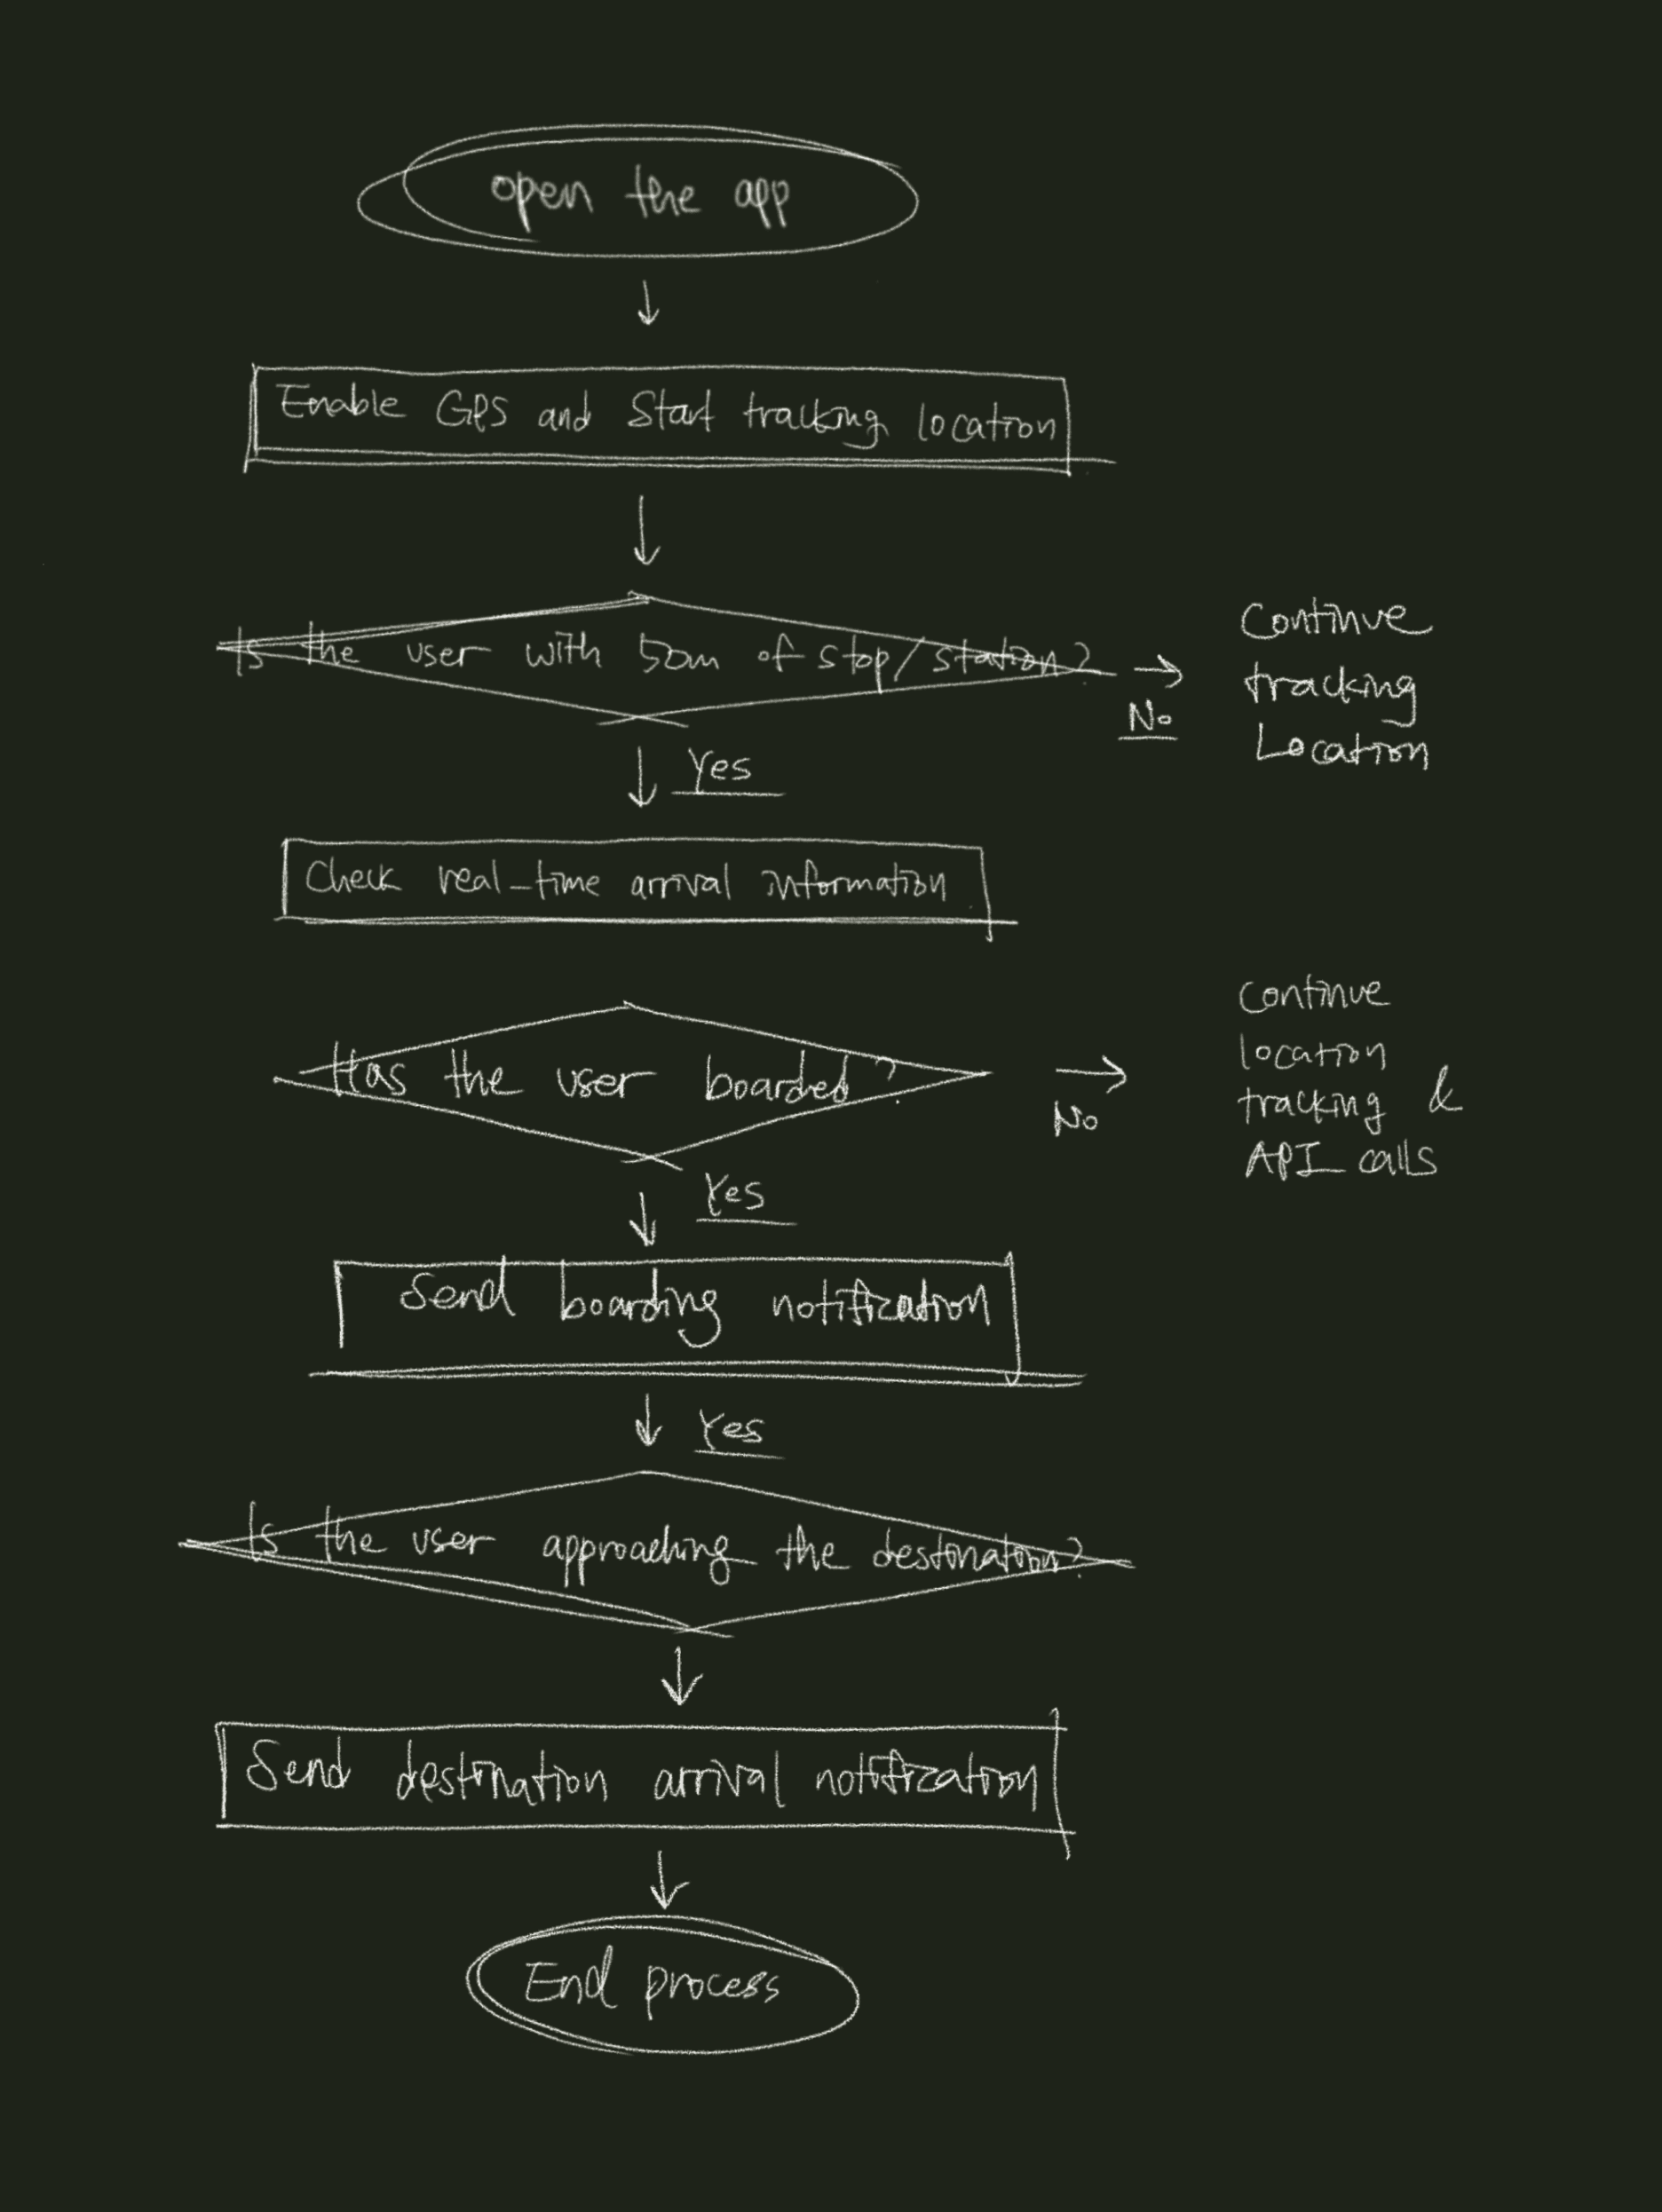 open the app
Enable GPS and Start tracking location
Is the user with 50m of stop/station?
No
Continue
tracking
Location
Yes
Check real-time arrival information
Has the user boarded?
No
Continue
location
tracking &
API calls
Yes
Send boarding notification
Yes
Is the user approaching the destination?
Send destination arrival notification
End process